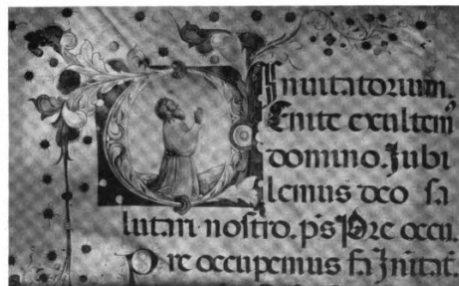 Inuitatorium.
Enite exultem̃
domino. Jubi
lemus deo sa
lutari nostro. p̃s Pre occu.
Pre occupemus fa Inuitat̃.